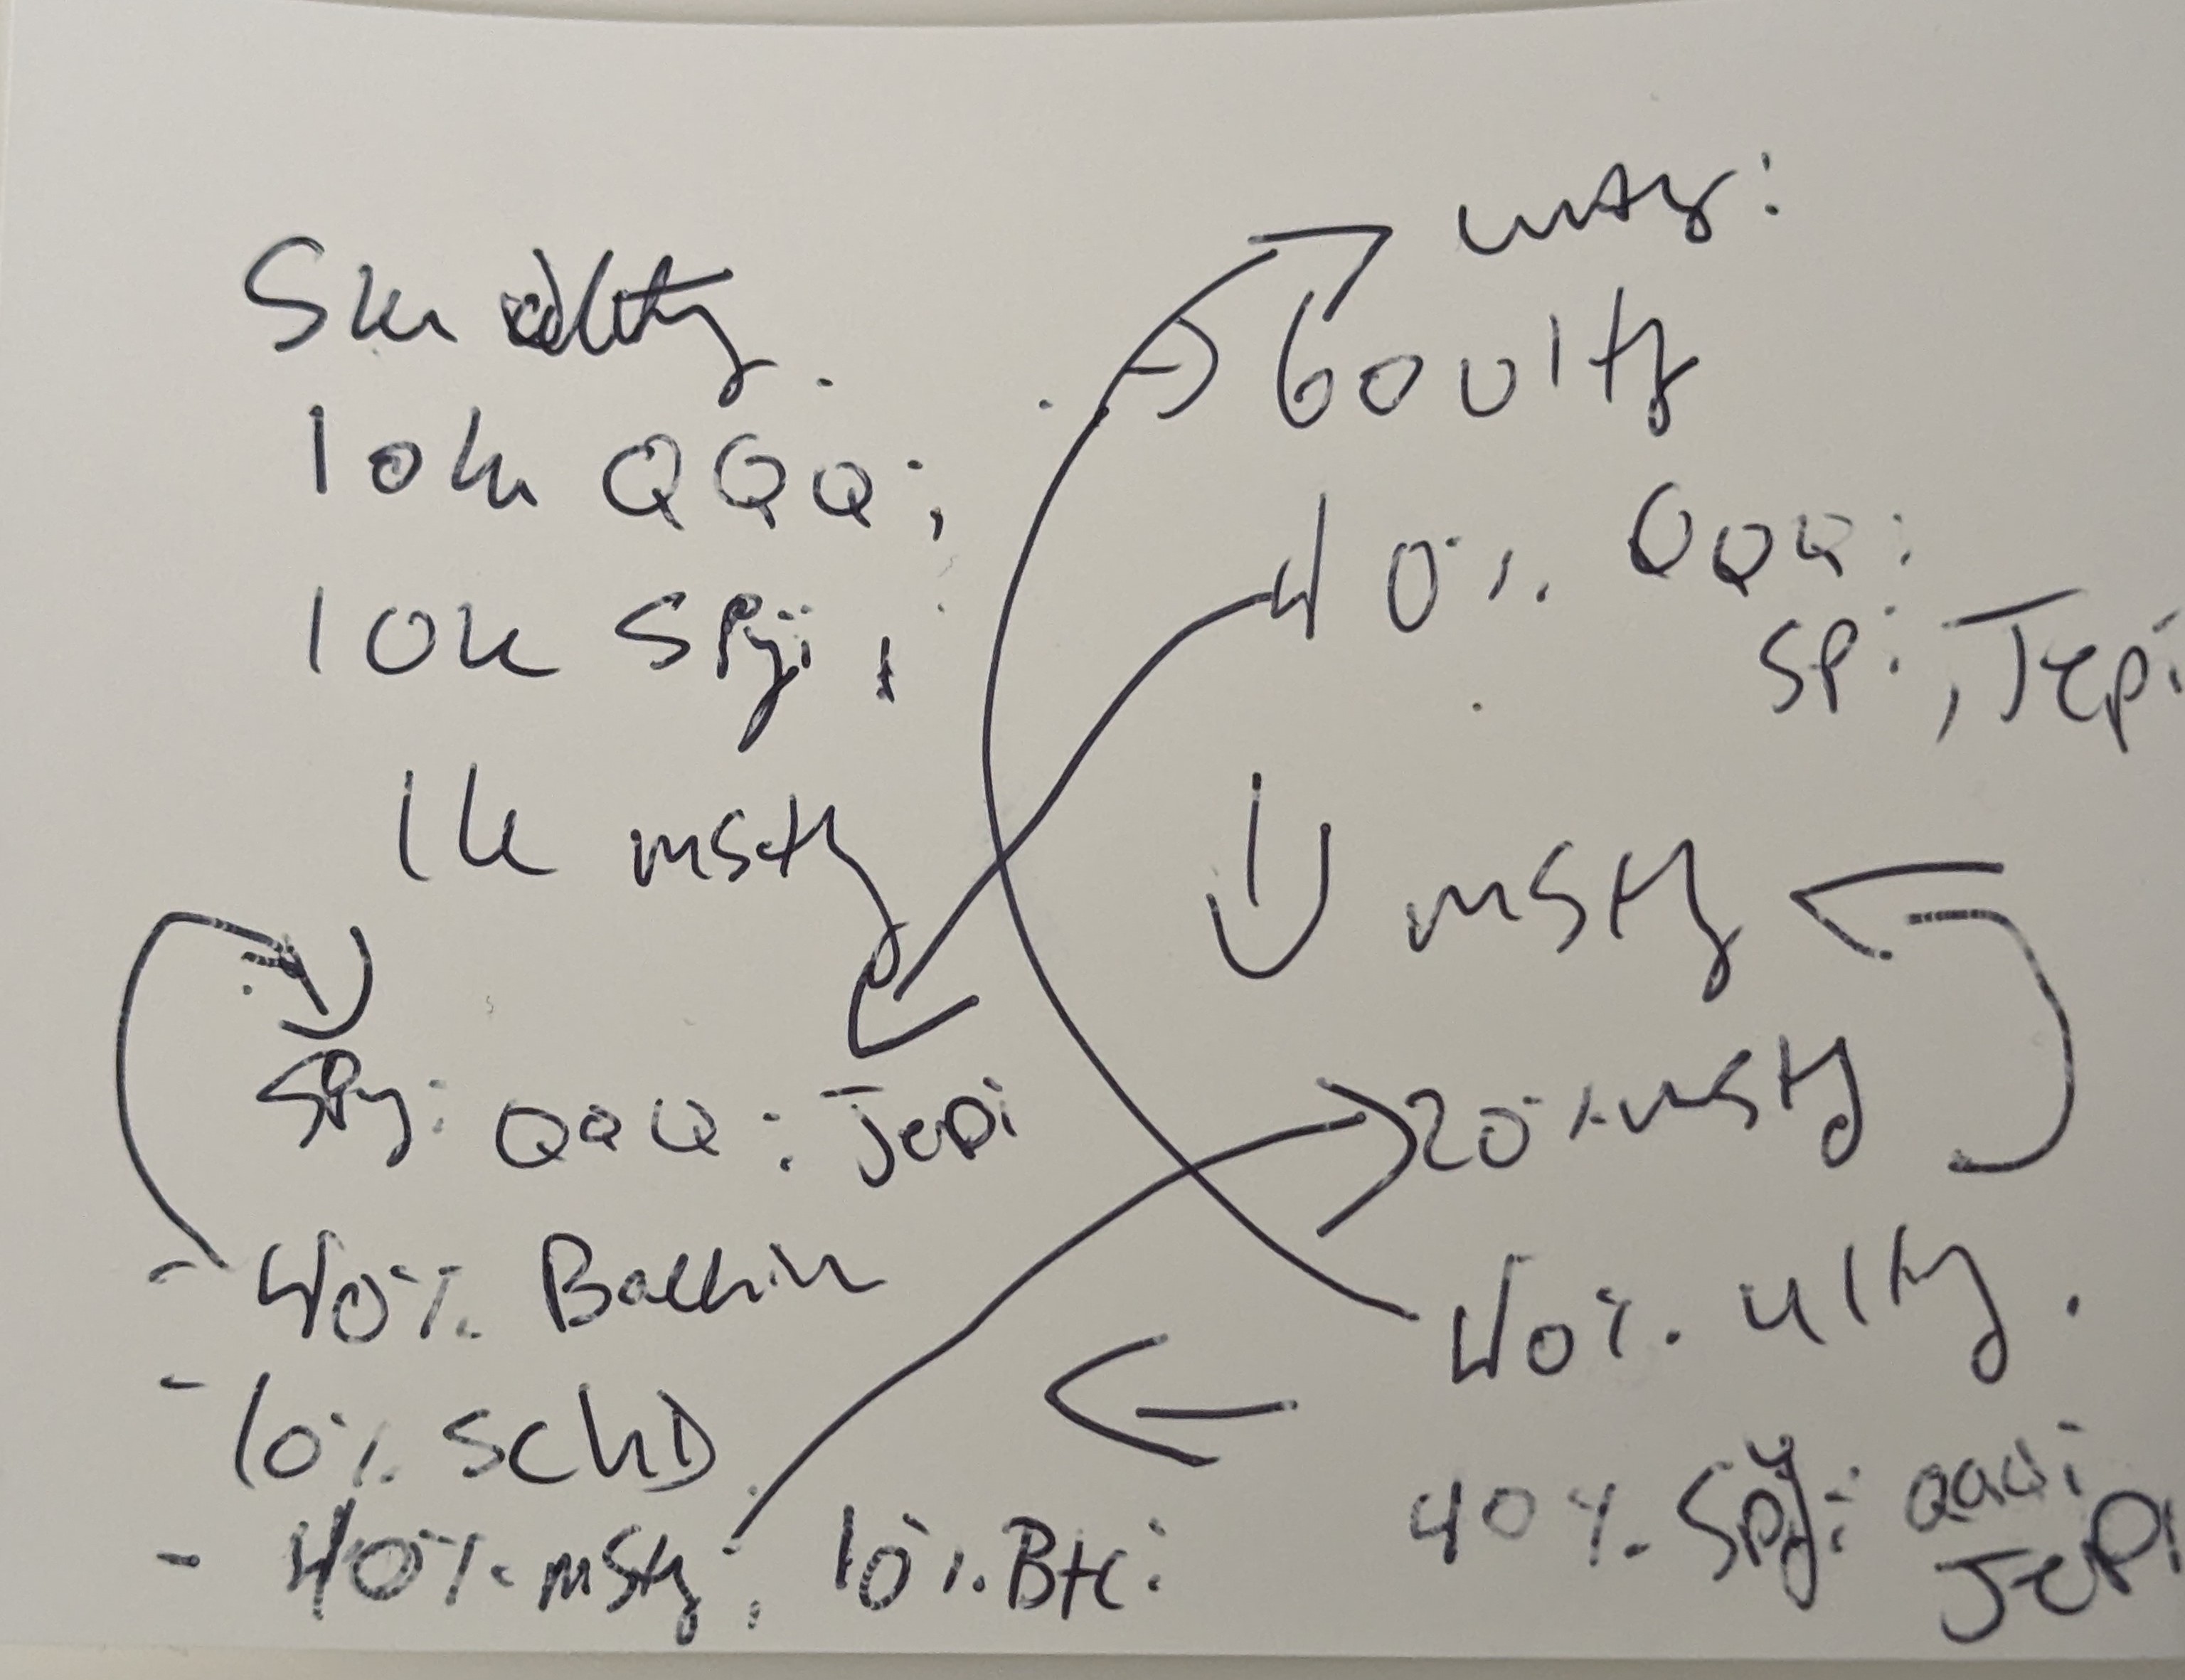 5k ulty.
10k QQQ;
10k SPyi,
1k msty
SPyi QQQ: Jepi
- 40% Back in
- 10% SCHD
- 40% msty; 10% Btci
msty:
60 ulty
40% QQQi
SPi, Jepi
msty
20% msty
40% ulty.
40% SPyi QQQi
JePi